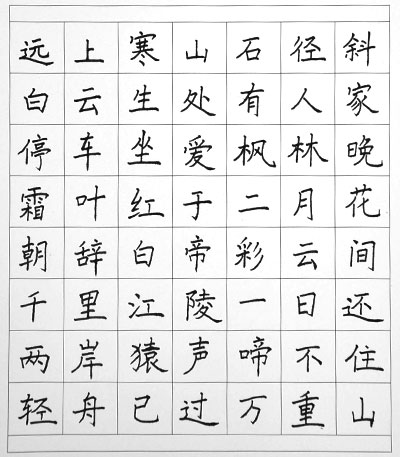 远上寒山石径斜
白云生处有人家
停车坐爱枫林晚
霜叶红于二月花
朝辞白帝彩云间
千里江陵一日还
两岸猿声啼不住
轻舟已过万重山